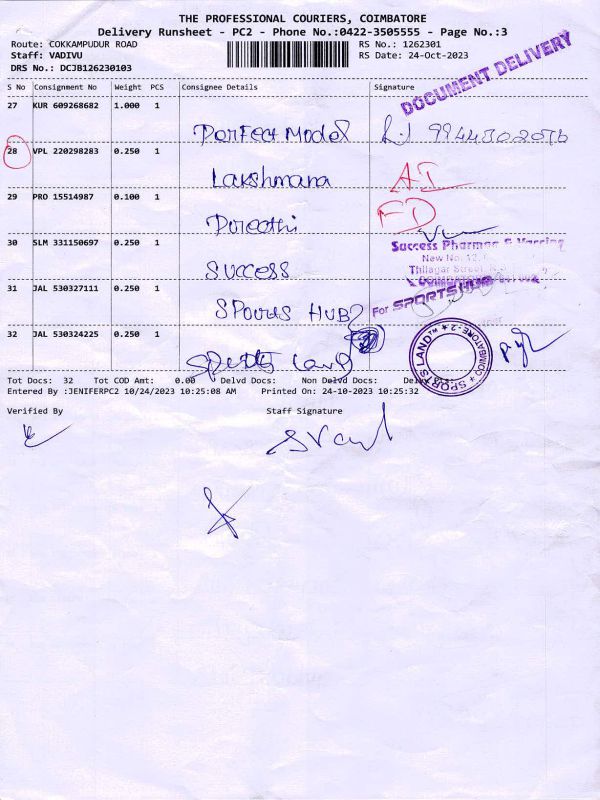 THE PROFESSIONAL COURIERS, COIMBATORE
Delivery Runsheet - PC2 - Phone No.:0422-3505555 - Page No.:3
Route: COKKAMPUDUR ROAD
Staff: VADIVU
DRS No.: DCJB126230103
RS No.: 1262301
RS Date: 24-Oct-2023
DOCUMENT DELIVERY
S No Consignment No Weight PCS Consignee Details Signature
27 KUR 609268682 1.000 1
Perfect Model
28 VPL 220298283 0.250 1
Lakshmana
AI
29 PRO 15514987 0.100 1
Preethi
FD
30 SLM 331150697 0.250 1
Success
Success Pharmac
New No. 12,
Thilagar Street
31 JAL 530327111 0.250 1
Sports HUB
For SPORTS HUB
32 JAL 530324225 0.250 1
Sports Land
SPORTS LAND ★ COIMBATORE-2 ★
Tot Docs: 32 Tot COD Amt: 0.00 Delvd Docs: Non Delvd Docs:
Entered By :JENIFERPC2 10/24/2023 10:25:08 AM Printed On: 24-10-2023 10:25:32
Verified By Staff Signature